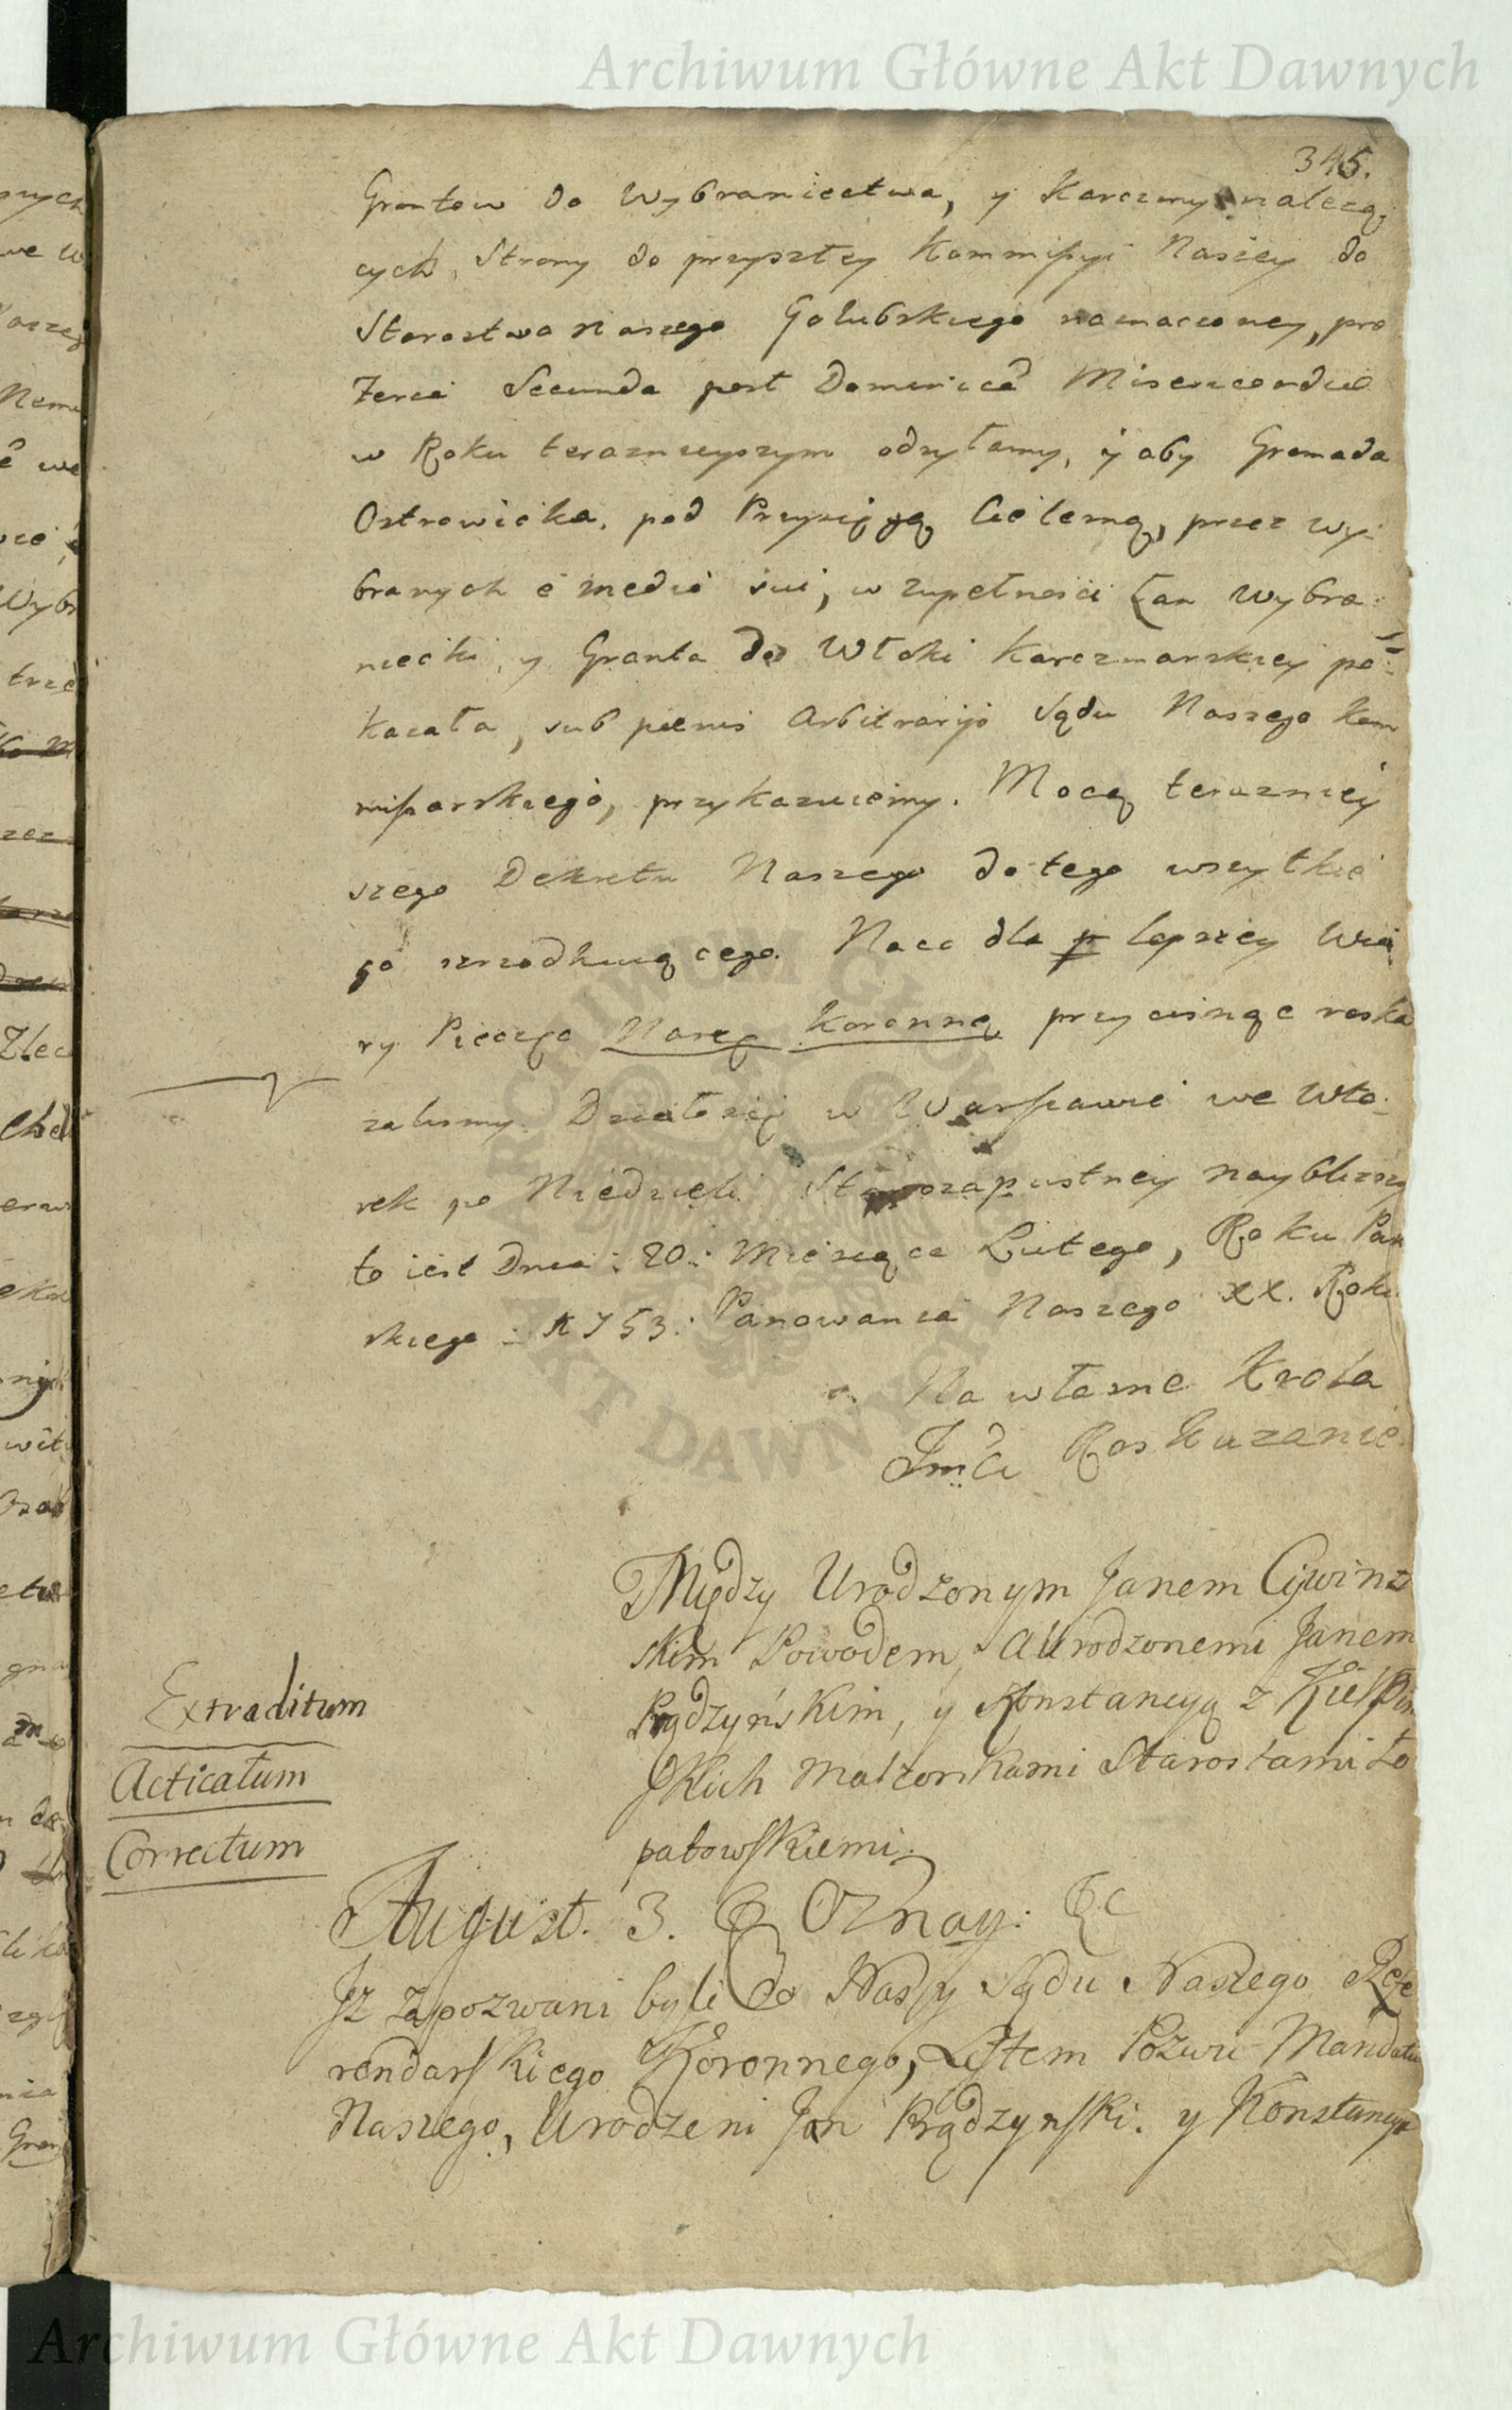 Archiwum Główne Akt Dawnych
345.
Grontow do Wybraniectwa, y Karczmy należą
cych, Strony do przyszłey Kommissyi Naszey do
Starostwa naszego Golubskiego naznaczoney, pro
Feria Secunda post Dominicã Misericordiæ
w Roku teraznieyszym odsyłamy, y aby Gromada
Ostrowicka, pod Przysięgą Cielesną, przez wy-
branych e medio sui, w zupełności Łan Wybra-
niecki, y Gronta do Włoki Karczmarskiey po-
kazała, sub pœnis Arbitrarijs Sądu Naszego kom
missarskiego, przykazuiemy. Mocą terazniey
szego Dekretu Naszego do tego wszytkie
go srzodkuiącego. Naco dla p lepszey Wia
ry Pieczęc Naszę Koronną przycisnąc roska
zalismy. Działo się w Warszawie we Wto-
rek po Niedzieli Starozapustney naybliższy
to iest Dnia: 20: Miesiąca Lutego, Roku Pań
skiego: 1753: Panowania Naszego XX. Roku
Na własne Krola
Jmći Roskazanie
Między Urodzonym Janem Cywinz
skim Powodem, A Urodzonemi Janem
Prądzyńskim, y Konstancyą z Kiełpin
skich Małżonkami Starostami Ło
patowskiemi.
Extraditum
Acticatum
Correctum
August. 3. Oznay: &c
Jż zapozwani byli do Nas y Sądu Naszego Refe
rendarskiego Koronnego, Listem Pozwu Mandatu
Naszego, Urodzeni Jan Prądzynski. y Konstancya
Archiwum Główne Akt Dawnych